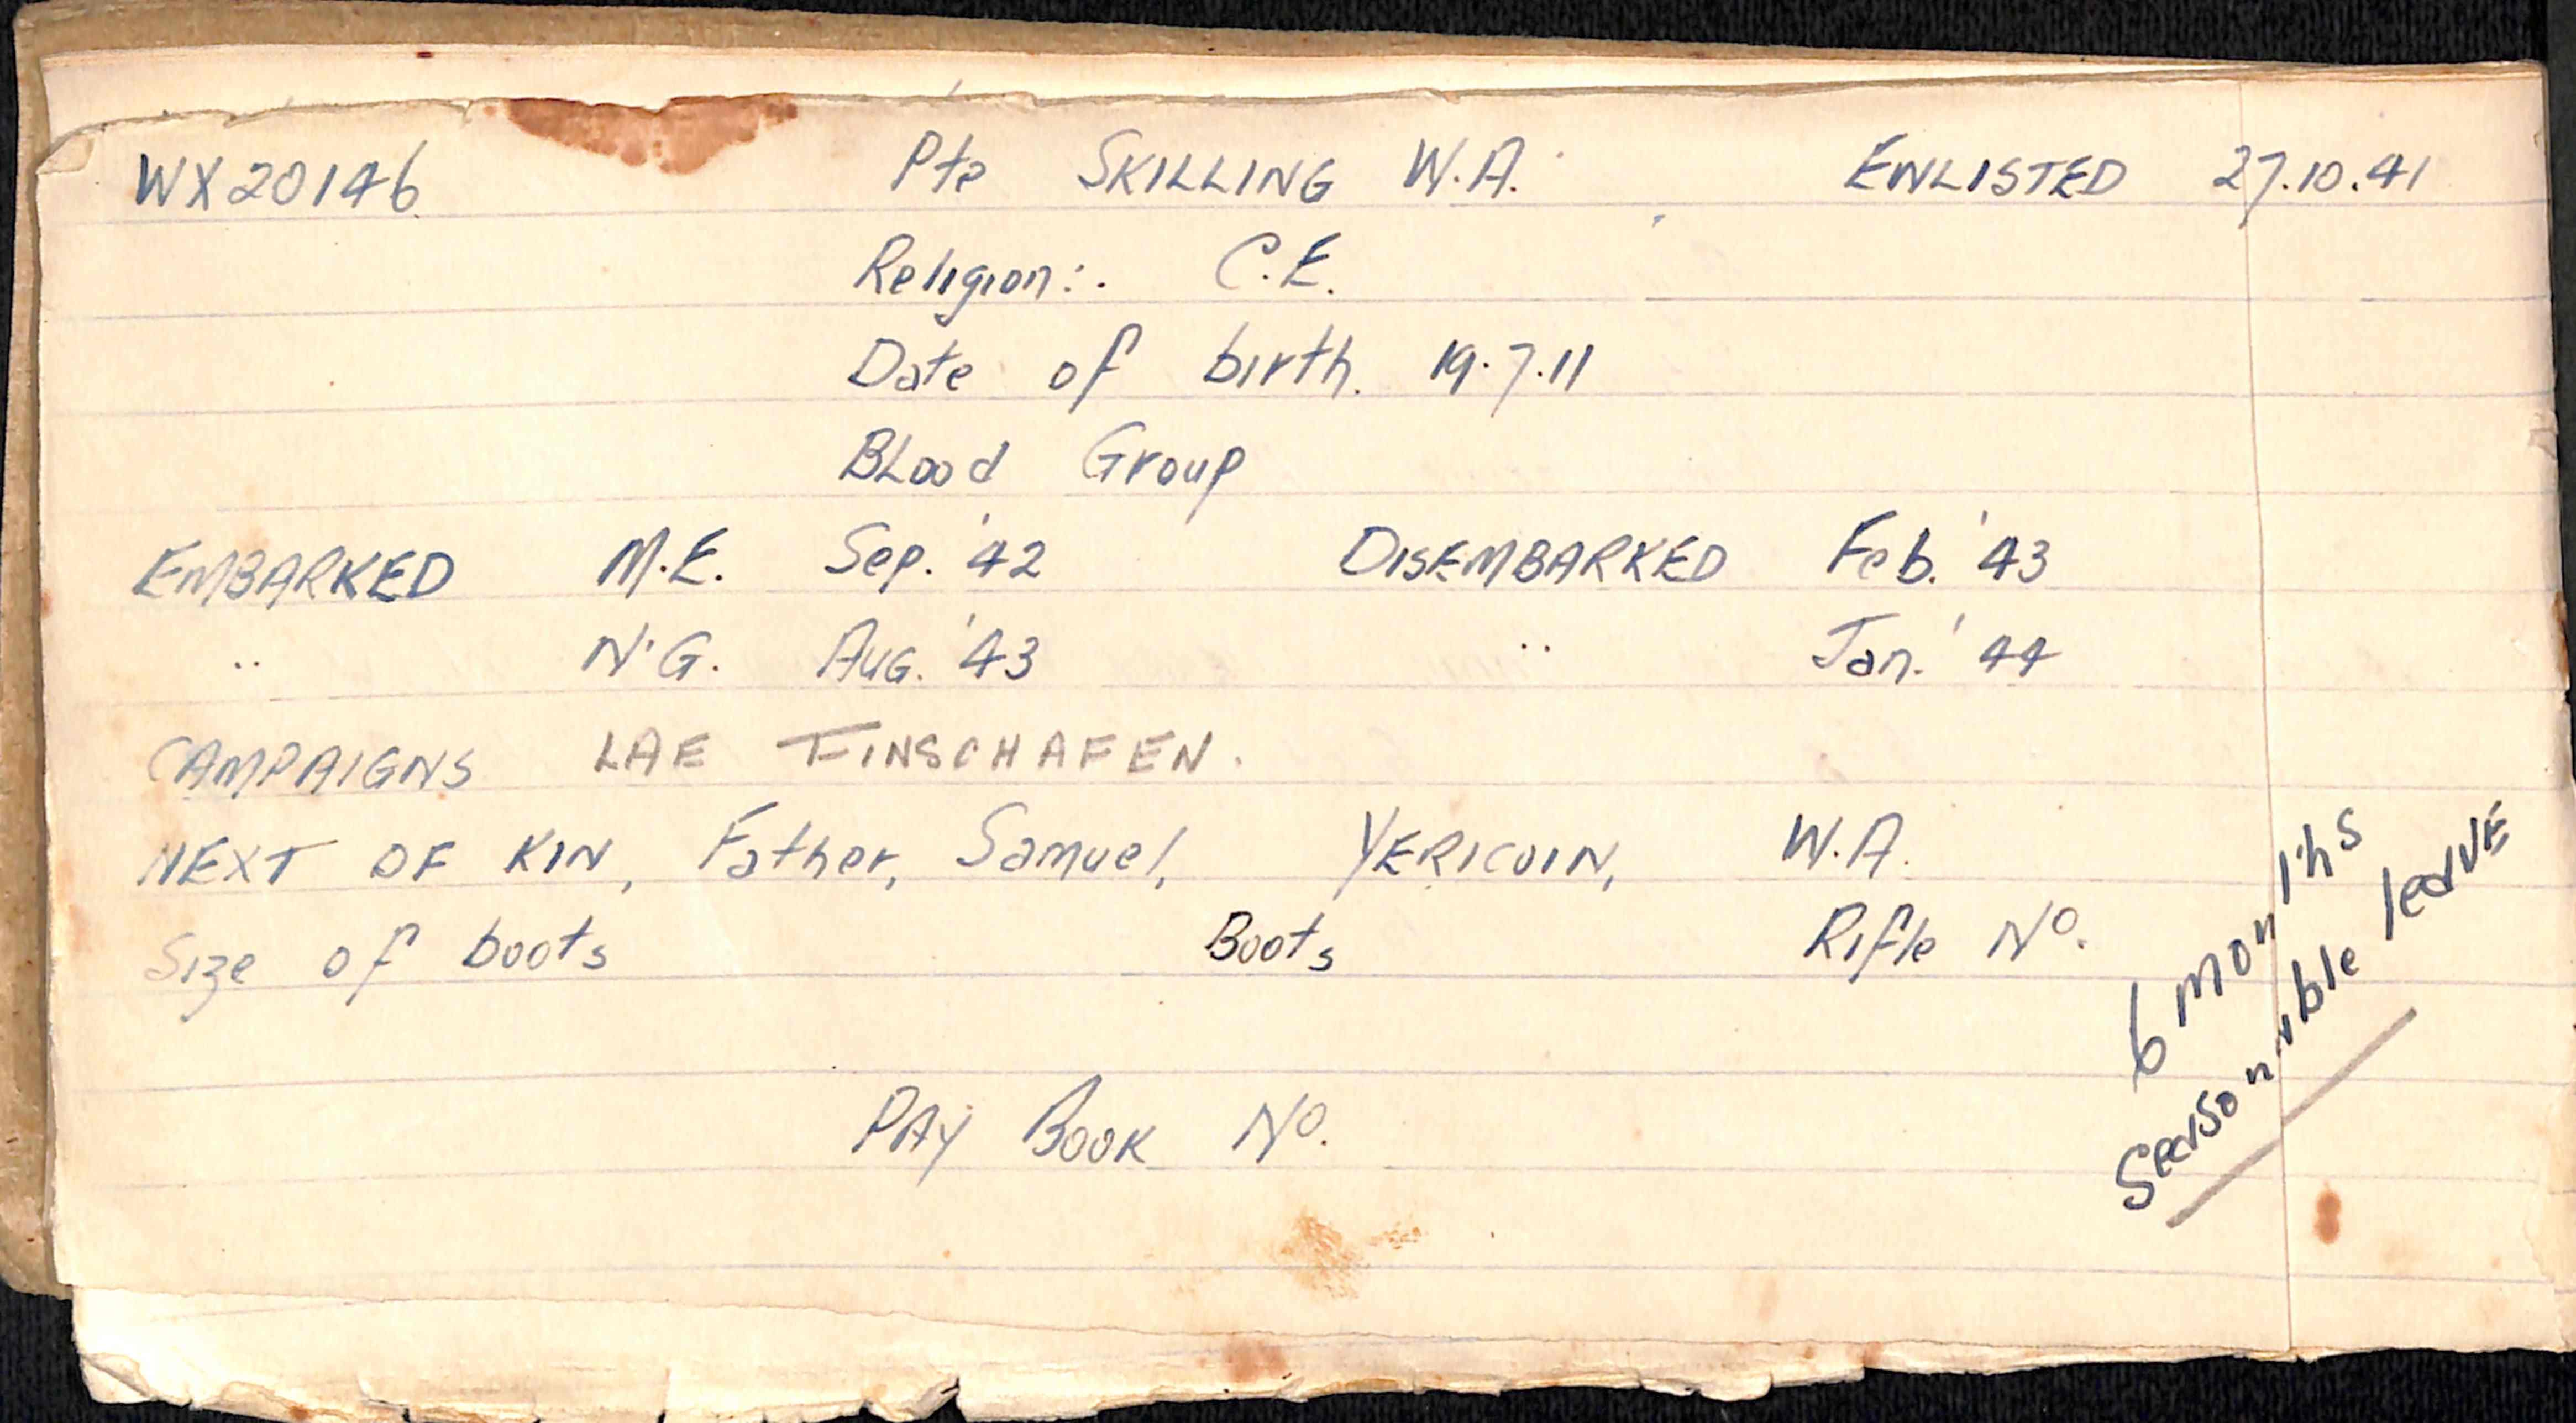 WX20146 Pte SKILLING W.A. ENLISTED 27.10.41
Religion:. C.E.
Date of birth. 19.7.11
Blood Group
EMBARKED M.E. Sep. '42 DISEMBARKED Feb. '43
.. N.G. Aug. '43 .. Jan. '44
CAMPAIGNS LAE FINSCHAFEN.
NEXT OF KIN, Father, Samuel, YERICOIN, W.A.
Size of boots Boots Rifle No.
PAY BOOK No.
6 months
Seasonable leave